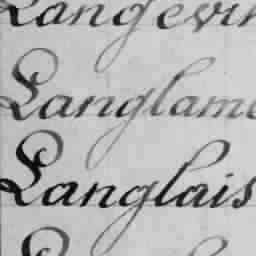 Langevin
Langlame
Langlais